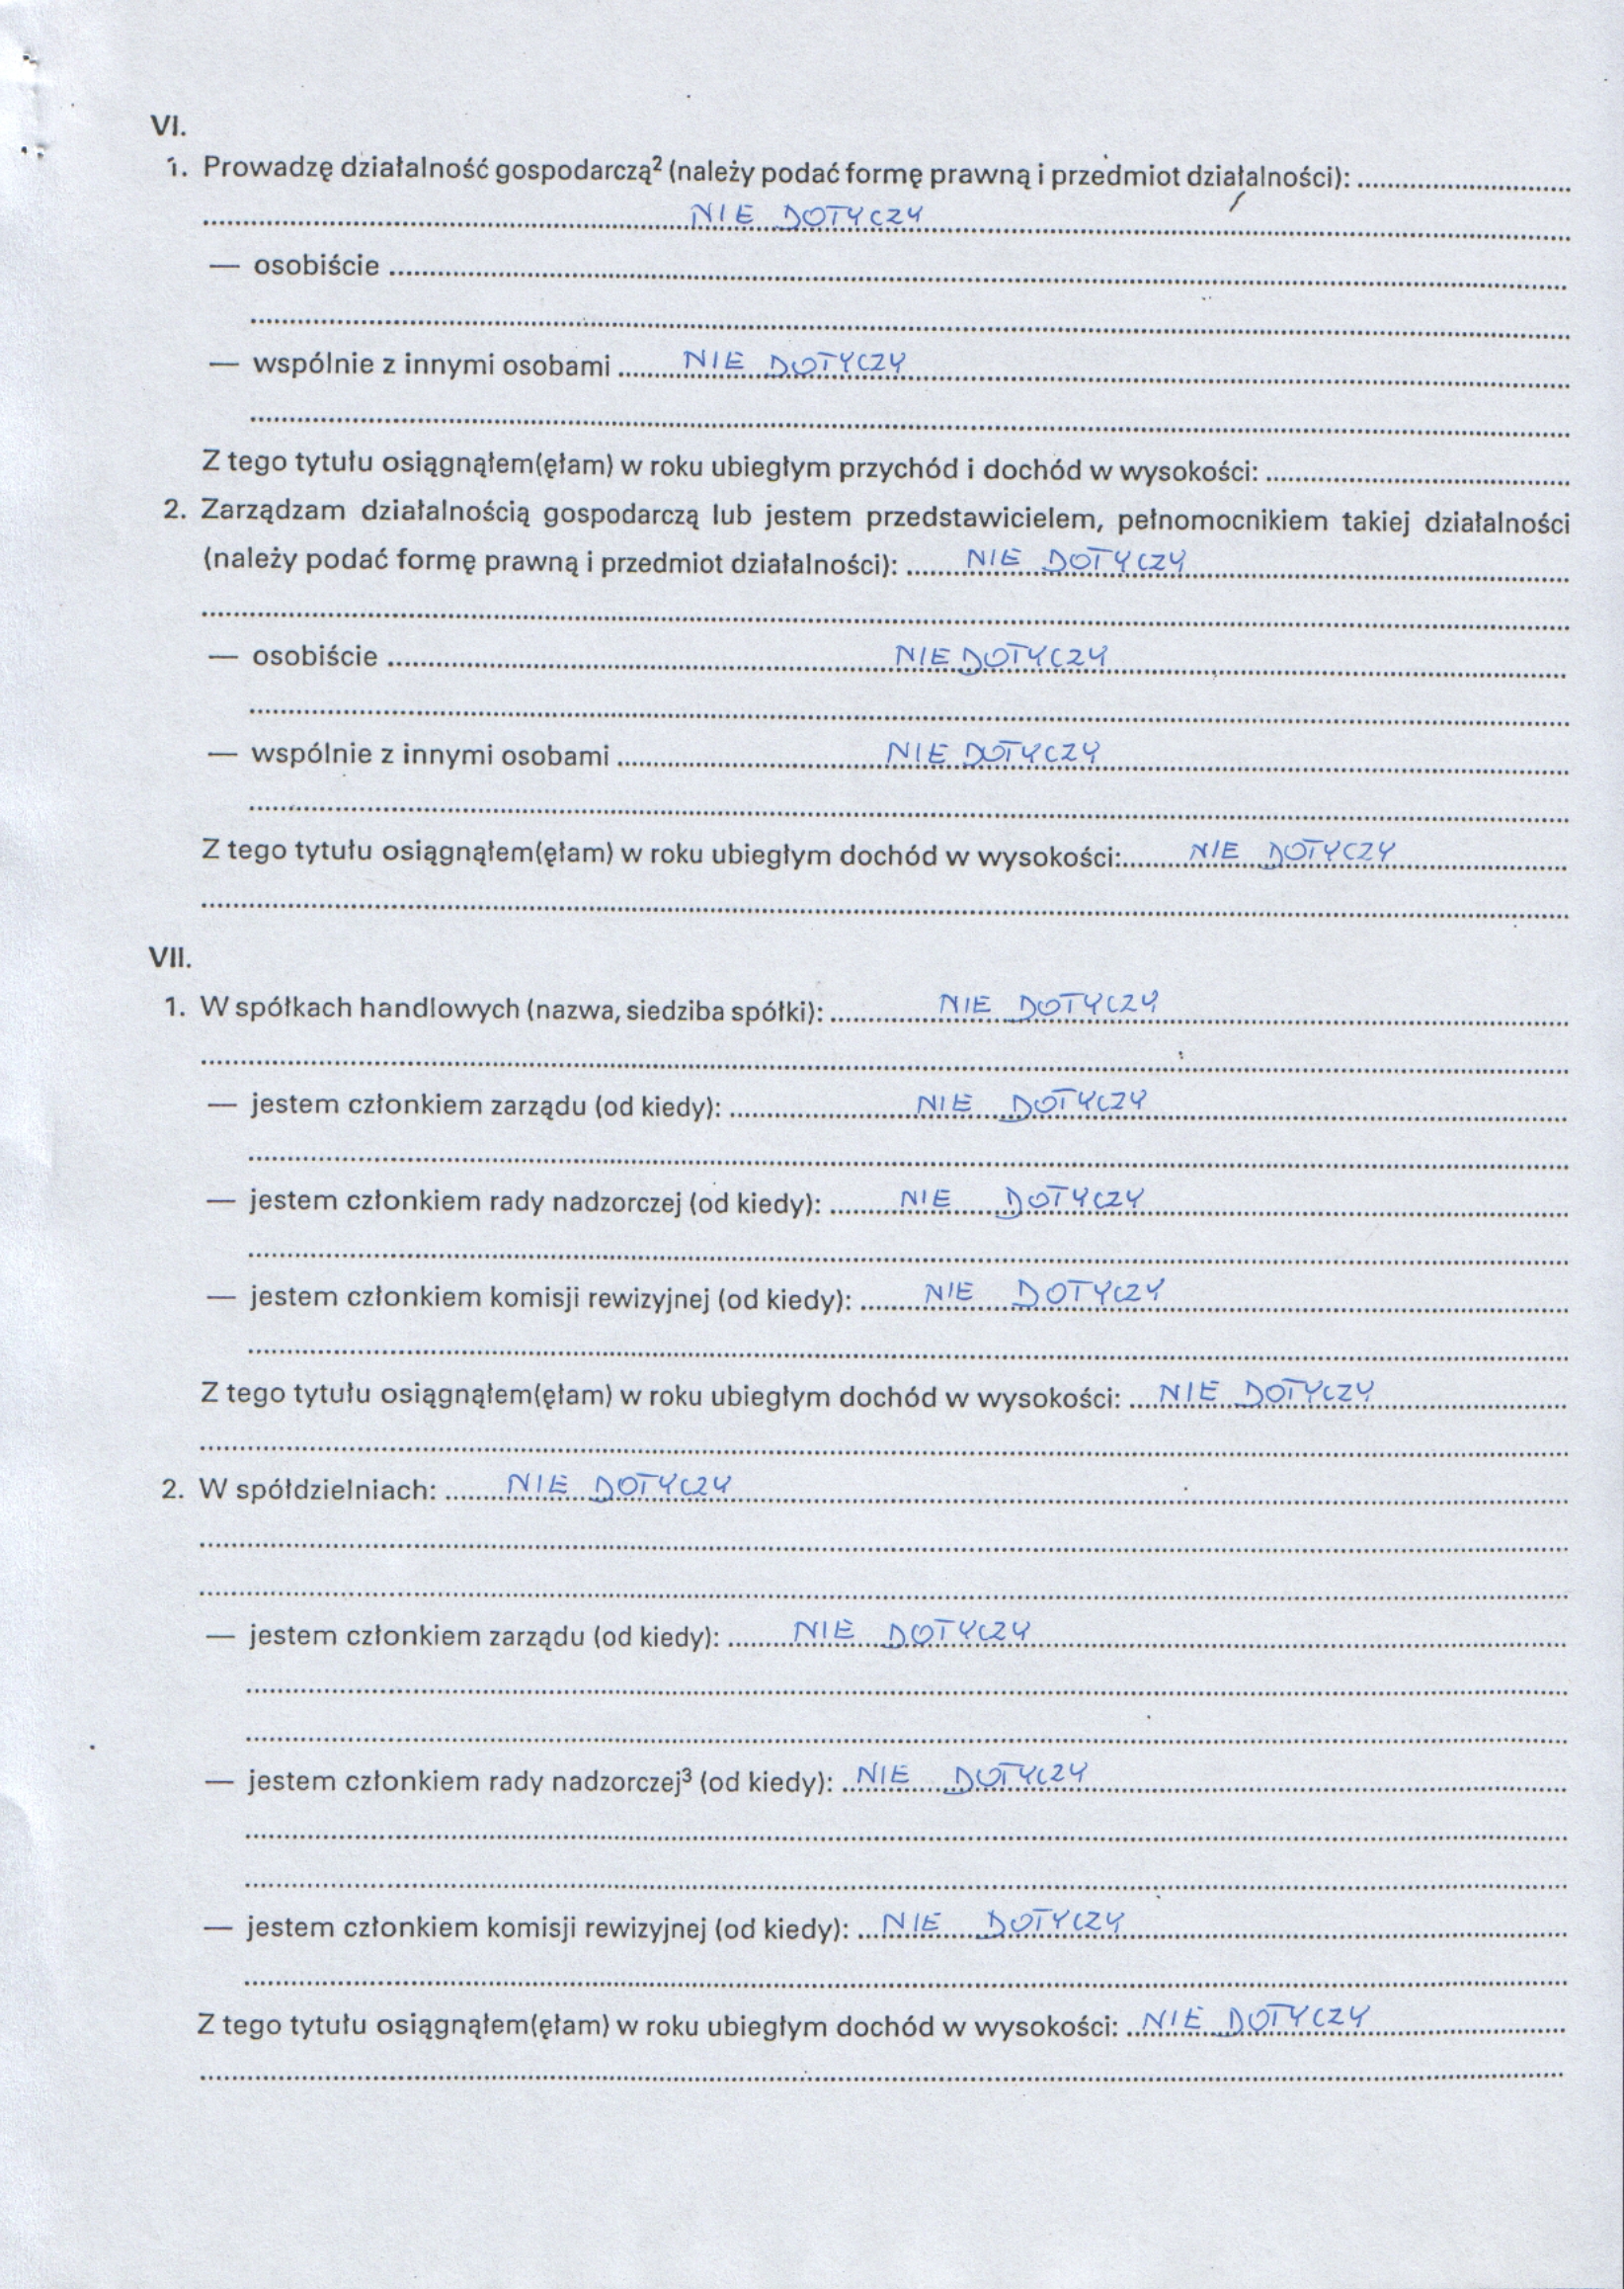 VI.
1. Prowadzę działalność gospodarczą² (należy podać formę prawną i przedmiot działalności):
NIE DOTYCZY
— osobiście
— wspólnie z innymi osobami NIE DOTYCZY
Z tego tytułu osiągnąłem(ęłam) w roku ubiegłym przychód i dochód w wysokości:
2. Zarządzam działalnością gospodarczą lub jestem przedstawicielem, pełnomocnikiem takiej działalności
(należy podać formę prawną i przedmiot działalności): NIE DOTYCZY
— osobiście NIE DOTYCZY
— wspólnie z innymi osobami NIE DOTYCZY
Z tego tytułu osiągnąłem(ęłam) w roku ubiegłym dochód w wysokości: NIE DOTYCZY
VII.
1. W spółkach handlowych (nazwa, siedziba spółki): NIE DOTYCZY
— jestem członkiem zarządu (od kiedy): NIE DOTYCZY
— jestem członkiem rady nadzorczej (od kiedy): NIE DOTYCZY
— jestem członkiem komisji rewizyjnej (od kiedy): NIE DOTYCZY
Z tego tytułu osiągnąłem(ęłam) w roku ubiegłym dochód w wysokości: NIE DOTYCZY
2. W spółdzielniach: NIE DOTYCZY
— jestem członkiem zarządu (od kiedy): NIE DOTYCZY
— jestem członkiem rady nadzorczej³ (od kiedy): NIE DOTYCZY
— jestem członkiem komisji rewizyjnej (od kiedy): NIE DOTYCZY
Z tego tytułu osiągnąłem(ęłam) w roku ubiegłym dochód w wysokości: NIE DOTYCZY